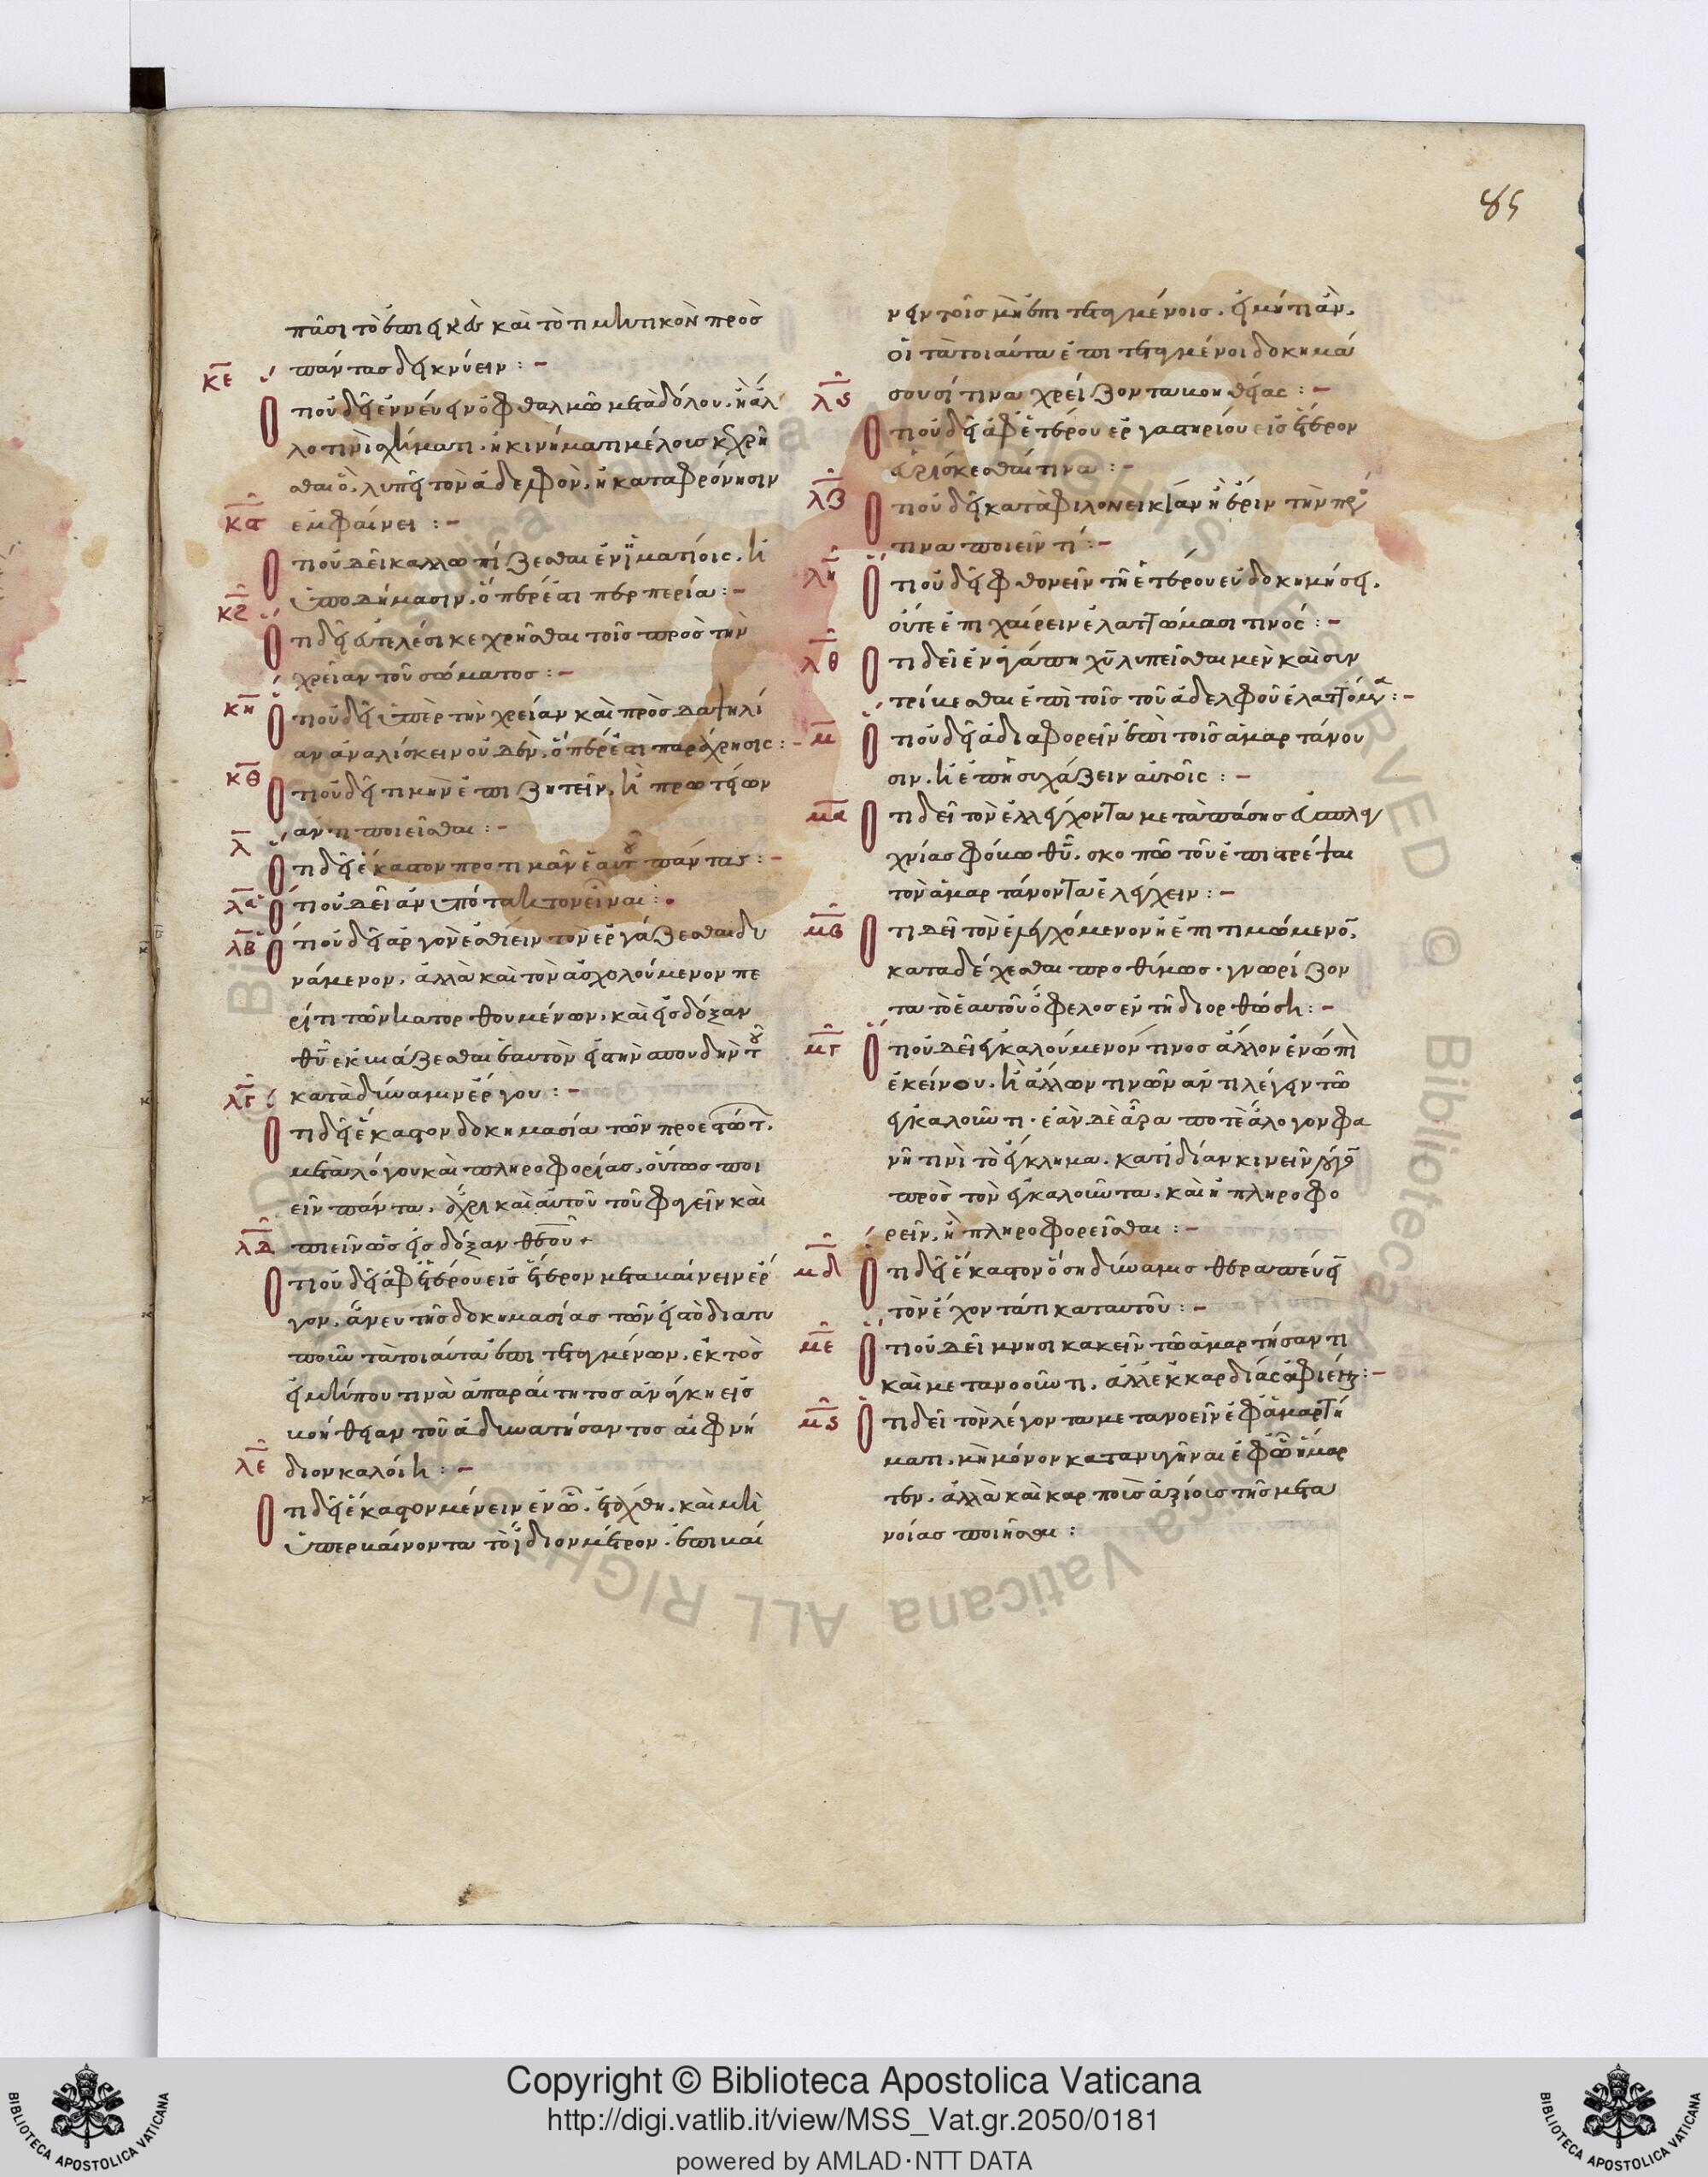 85
πᾶσι τὸ ἐπιεικὲς καὶ τὸ τιμητικὸν πρὸς
πάντας δεικνύειν : –
κε
Ὅτι οὐ δεῖ ἐννεύειν ὀφθαλμῶ μετὰ δόλου. ἢ ἄλ
λο τινὶ σχήματι. ἢ κινήματι μέλους κεχρῆ
σθαι ὃ, λυπεῖ τὸν ἀδελφὸν, ἢ καταφρόνησιν
ἐμφαίνει : –
κϛ
Ὅτι οὐ δεῖ καλλωπίζεσθαι ἐν ἱματίοις. ἢ
ὑποδήμασιν. ὅπερ ἐστι περπερία : –
κζ
Ὅτι δεῖ εὐτελέσι κεχρῆσθαι τοῖς πρὸς τὴν
χρείαν τοῦ σώματος : –
κη
Ὅτι οὐ δεῖ ὑπὲρ τὴν χρείαν καὶ πρὸς δαψηλί
αν ἀναλίσκειν οὐδὲν, ὅπερ ἐστι παράχρησις : –
κθ
Ὅτι οὐ δεῖ τιμὴν ἐπιζητεῖν, ἢ πρωτείων
ἀντιποιεῖσθαι : –
λ
Ὅτι δεῖ ἕκαστον προτιμᾶν ἑαυτοῦ πάντας : –
λα
Ὅτι οὐ δεῖ ἀνυπότακτον εἶναι :
λβ
Ὅτι οὐ δεῖ ἀργὸν ἐσθίειν τὸν ἐργάζεσθαι δυ
νάμενον. ἀλλὰ καὶ τὸν ἀσχολούμενον πε
ρί τι τῶν κατορθουμένων. καὶ εἰς δόξαν
θῦ ἐκβιάζεσθαι ἑαυτὸν εἰς τὴν σπουδὴν τοῦ
κατὰ δύναμιν ἔργου : –
λγ
Ὅτι δεῖ ἕκαστον δοκιμασία τῶν προεστώτ.
μετὰ λόγου καὶ πληροφορίας. οὕτως ποι
εῖν πάντα. ἄχρι καὶ αὐτοῦ τοῦ φαγεῖν καὶ
πιεῖν ὡς εἰς δόξαν θεοῦ +
λδ
Ὅτι οὐ δεῖ ἀφ ἑτέρου εἰς ἕτερον μεταβαίνειν ἔρ
γον. ἄνευ τῆς δοκημασίας τῶν εἰς τὸ διατυ
ποῦν τὰ τοιαῦτα ἐπιτεταγμένων. ἐκτὸς
εἰ μήπου τινὰ ἀπαραίτητος ἀνάγκη εἰς
βοήθειαν τοῦ ἀδυνατήσαντος αἰφνή
διον καλέσει : –
λε
Ὅτι δεῖ ἕκαστον μένειν ἐν ὧ. ἐτάχθη. καὶ μὴ
ὑπερβαίνοντα τὸ ἴδιον μέτρον. ἐπιβαί
νειν τοῖς μὴ ἐπιτεταγμένοις. εἰ μήτι ἂν.
οἱ τὰ τοιαῦτα ἐπιτεταγμένοι δοκημά
σουσί τινα χρείζοντα βοηθείας : –
λϛ
Ὅτι οὐ δεῖ ἀφ ἑτέρου ἐργαστηρίου εἰς ἕτερον
εὑρίσκεσθαί τινα : –
λζ
Ὅτι οὐ δεῖ κατὰ φιλονεικίαν ἢ ἔριν τὴν πρός
τινα ποιεῖν τί : –
λη
Ὅτι οὐ δεῖ φθονεῖν τῆ ἑτέρου εὐδοκημήσει.
οὔτε ἐπιχαίρειν ἐλαττώμασι τινός : –
λθ
Ὅτι δεῖ ἐν ἀγάπη χῦ λυπεῖσθαι μὲν καὶ συν
τρίβεσθαι ἐπὶ τοῖς τοῦ ἀδελφοῦ ἐλαττώμα : –
μ
Ὅτι οὐ δεῖ ἀδιαφορεῖν ἐπὶ τοῖς ἁμαρτάνου
σιν. ἢ ἐπησυχάζειν αὐτοῖς : –
μα
Ὅτι δεῖ τὸν ἐλέγχοντα μετὰ πάσης εὐσπλαγ
χνίας φόβω θῦ. σκοπῶ τοῦ ἐπιστρέψαι
τὸν ἁμαρτάνοντα ἐλέγχειν : –
μβ
Ὅτι δεῖ τὸν ἐλεγχόμενον ἢ ἐπιτιμώμενον,
καταδέχεσθαι προθύμως. γνωρίζον
τα τὸ ἑαυτοῦ ὄφελος ἐν τῆ διορθώσει : –
μγ
Ὅτι οὐ δεῖ ἐγκαλούμενόν τινος ἄλλον ἐνώπι
ἐκείνου. ἢ ἄλλων τινῶν ἀντιλέγειν τῶ
ἐγκαλοῦντι. ἐὰν δὲ ἄρα ποτὲ ἄλογον φα
νῆ τινὶ τὸ ἔγκλημα. κατιδίαν κινεῖν λόγον
πρὸς τὸν ἐγκαλοῦντα. καὶ ἢ πληροφο
ρεῖν, ἢ πληροφορεῖσθαι : –
μδ
Ὅτι δεῖ ἕκαστον ὅση δύναμις θεραπεύειν
τὸν ἔχοντά τι κατ αυτοῦ : –
με
Ὅτι οὐ δεῖ μνησικακεῖν τῶ ἁμαρτήσαντι
καὶ μετανοοῦντι. ἀλλ ἐκ καρδίας ἀφιέναι : –
μϛ
Ὅτι δεῖ τὸν λέγοντα μετανοεῖν ἐφ ἁμαρτή
ματι. μὴ μόνον κατανυγῆναι ἐφ ὧ ἥμαρ
τεν. ἀλλὰ καὶ καρποὺς ἀξίους τῆς μετα
νοίας ποιῆσαι :
Copyright © Biblioteca Apostolica Vaticana
http://digi.vatlib.it/view/MSS_Vat.gr.2050/0181
powered by AMLAD·NTT DATA
BIBLIOTECA APOSTOLICA VATICANA
BIBLIOTECA APOSTOLICA VATICANA